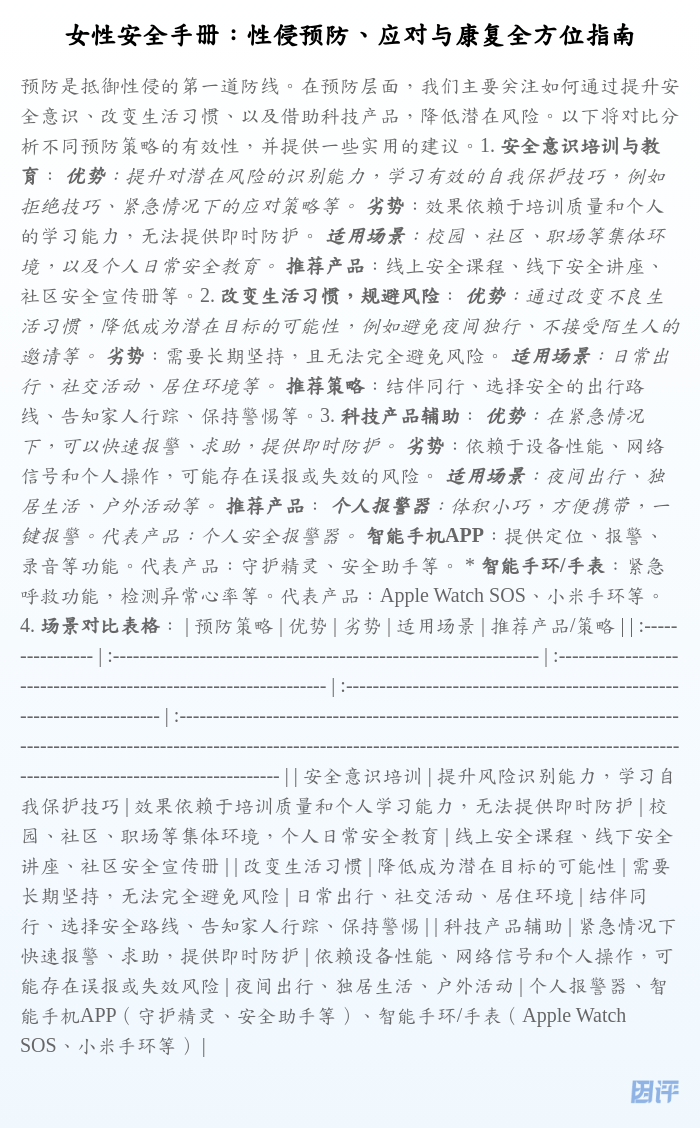 女性安全手册：性侵预防、应对与康复全方位指南
预防是抵御性侵的第一道防线。在预防层面，我们主要关注如何通过提升安
全意识、改变生活习惯、以及借助科技产品，降低潜在风险。以下将对比分
析不同预防策略的有效性，并提供一些实用的建议。1. 安全意识培训与教
育： 优势：提升对潜在风险的识别能力，学习有效的自我保护技巧，例如
拒绝技巧、紧急情况下的应对策略等。 劣势：效果依赖于培训质量和个人
的学习能力，无法提供即时防护。 适用场景：校园、社区、职场等集体环
境，以及个人日常安全教育。 推荐产品：线上安全课程、线下安全讲座、
社区安全宣传册等。2. 改变生活习惯，规避风险： 优势：通过改变不良生
活习惯，降低成为潜在目标的可能性，例如避免夜间独行、不接受陌生人的
邀请等。 劣势：需要长期坚持，且无法完全避免风险。 适用场景：日常出
行、社交活动、居住环境等。 推荐策略：结伴同行、选择安全的出行路
线、告知家人行踪、保持警惕等。3. 科技产品辅助： 优势：在紧急情况
下，可以快速报警、求助，提供即时防护。 劣势：依赖于设备性能、网络
信号和个人操作，可能存在误报或失效的风险。 适用场景：夜间出行、独
居生活、户外活动等。 推荐产品： 个人报警器：体积小巧，方便携带，一
键报警。代表产品：个人安全报警器。 智能手机APP：提供定位、报警、
录音等功能。代表产品：守护精灵、安全助手等。 * 智能手环/手表：紧急
呼救功能，检测异常心率等。代表产品：Apple Watch SOS、小米手环等。
4. 场景对比表格： | 预防策略 | 优势 | 劣势 | 适用场景 | 推荐产品/策略 | | :-----
-------------- | :---------------------------------------------------------------- | :------------------
---------------------------------------------- | :--------------------------------------------------
--------------------- | :---------------------------------------------------------------------------
----------------------------------------------------------------------------------------------------
--------------------------------------- | | 安全意识培训 | 提升风险识别能力，学习自
我保护技巧 | 效果依赖于培训质量和个人学习能力，无法提供即时防护 | 校
园、社区、职场等集体环境，个人日常安全教育 | 线上安全课程、线下安全
讲座、社区安全宣传册 | | 改变生活习惯 | 降低成为潜在目标的可能性 | 需要
长期坚持，无法完全避免风险 | 日常出行、社交活动、居住环境 | 结伴同
行、选择安全路线、告知家人行踪、保持警惕 | | 科技产品辅助 | 紧急情况下
快速报警、求助，提供即时防护 | 依赖设备性能、网络信号和个人操作，可
能存在误报或失效风险 | 夜间出行、独居生活、户外活动 | 个人报警器、智
能手机APP（守护精灵、安全助手等）、智能手环/手表（Apple Watch
SOS、小米手环等） |
因评